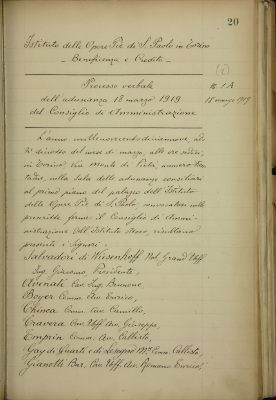 20
Istituto delle Opere Pie di S. Paolo in Torino
- Beneficenza e Credito -
Processo verbale
N. 1A
dell'adunanza 18 marzo 1919
18 marzo 1919
del Consiglio di Amministrazione
L'anno millenovecentodiciannove, addì
diciotto del mese di marzo, alle ore sedici,
in Torino, via Monte di Pietà, numero
nella Sala delle adunanze consigliari
al primo piano del palazzo dell'Istituto
delle Opere Pie di S. Paolo convocatosi nelle
prescritte forme il Consiglio di Ammi-
nistrazione dell'Istituto stesso, risultano
presenti i Signori:
Salvadori di Wiesenhoff Nob. Grand'Uff.
Ing. Giacomo, Presidente,
Avenati Cav. Ing.
Boyer Comm. Avv. Enrico,
Chinea Comm. Avv. Camillo,
Cravera Cav. Uff. Avv. Giuseppe,
Emprin Comm. Avv. Callisto,
Gay di Quarti e di Lesegno Comm. Callisto,
Gianotti Bar. Cav. Uff. Avv. Romano Enrico,